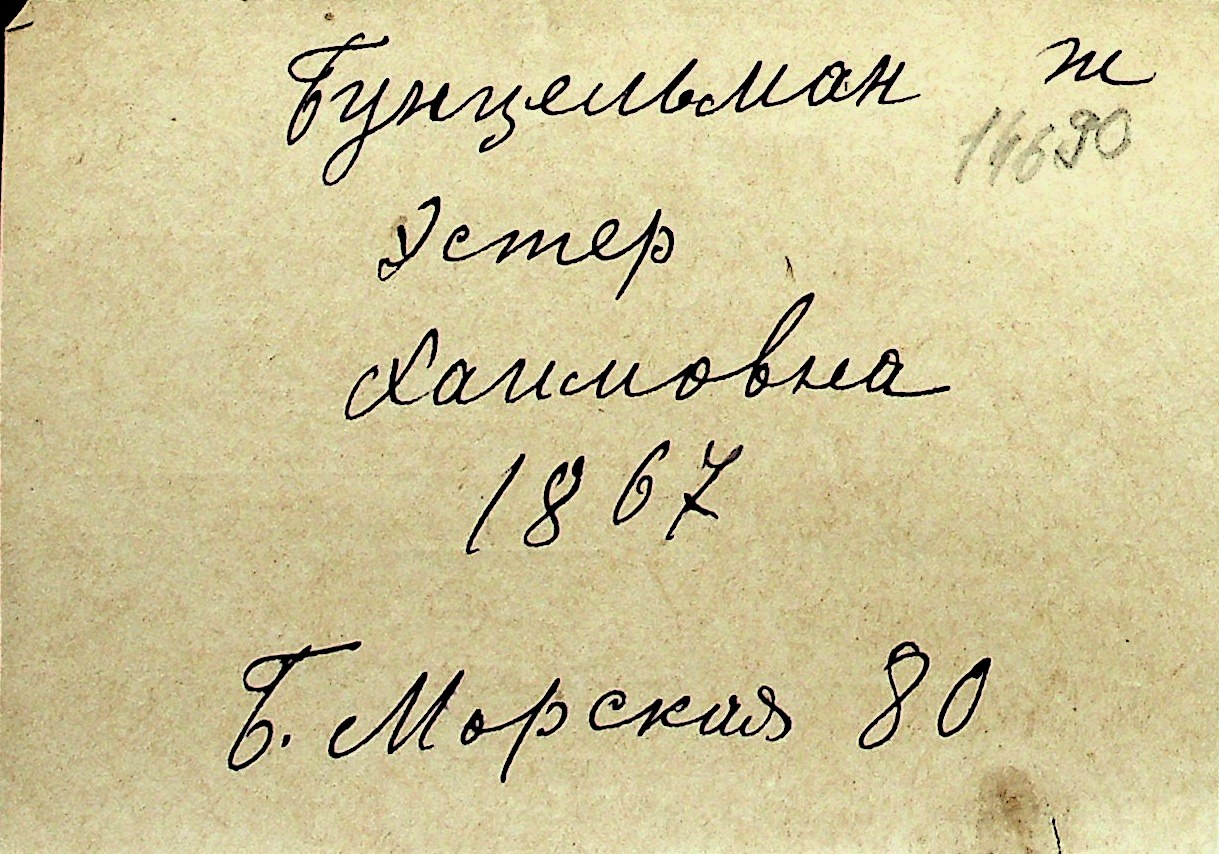 Бунцельман ж
14690
Эстер
Хаимовна
1867
Б. Морская 80